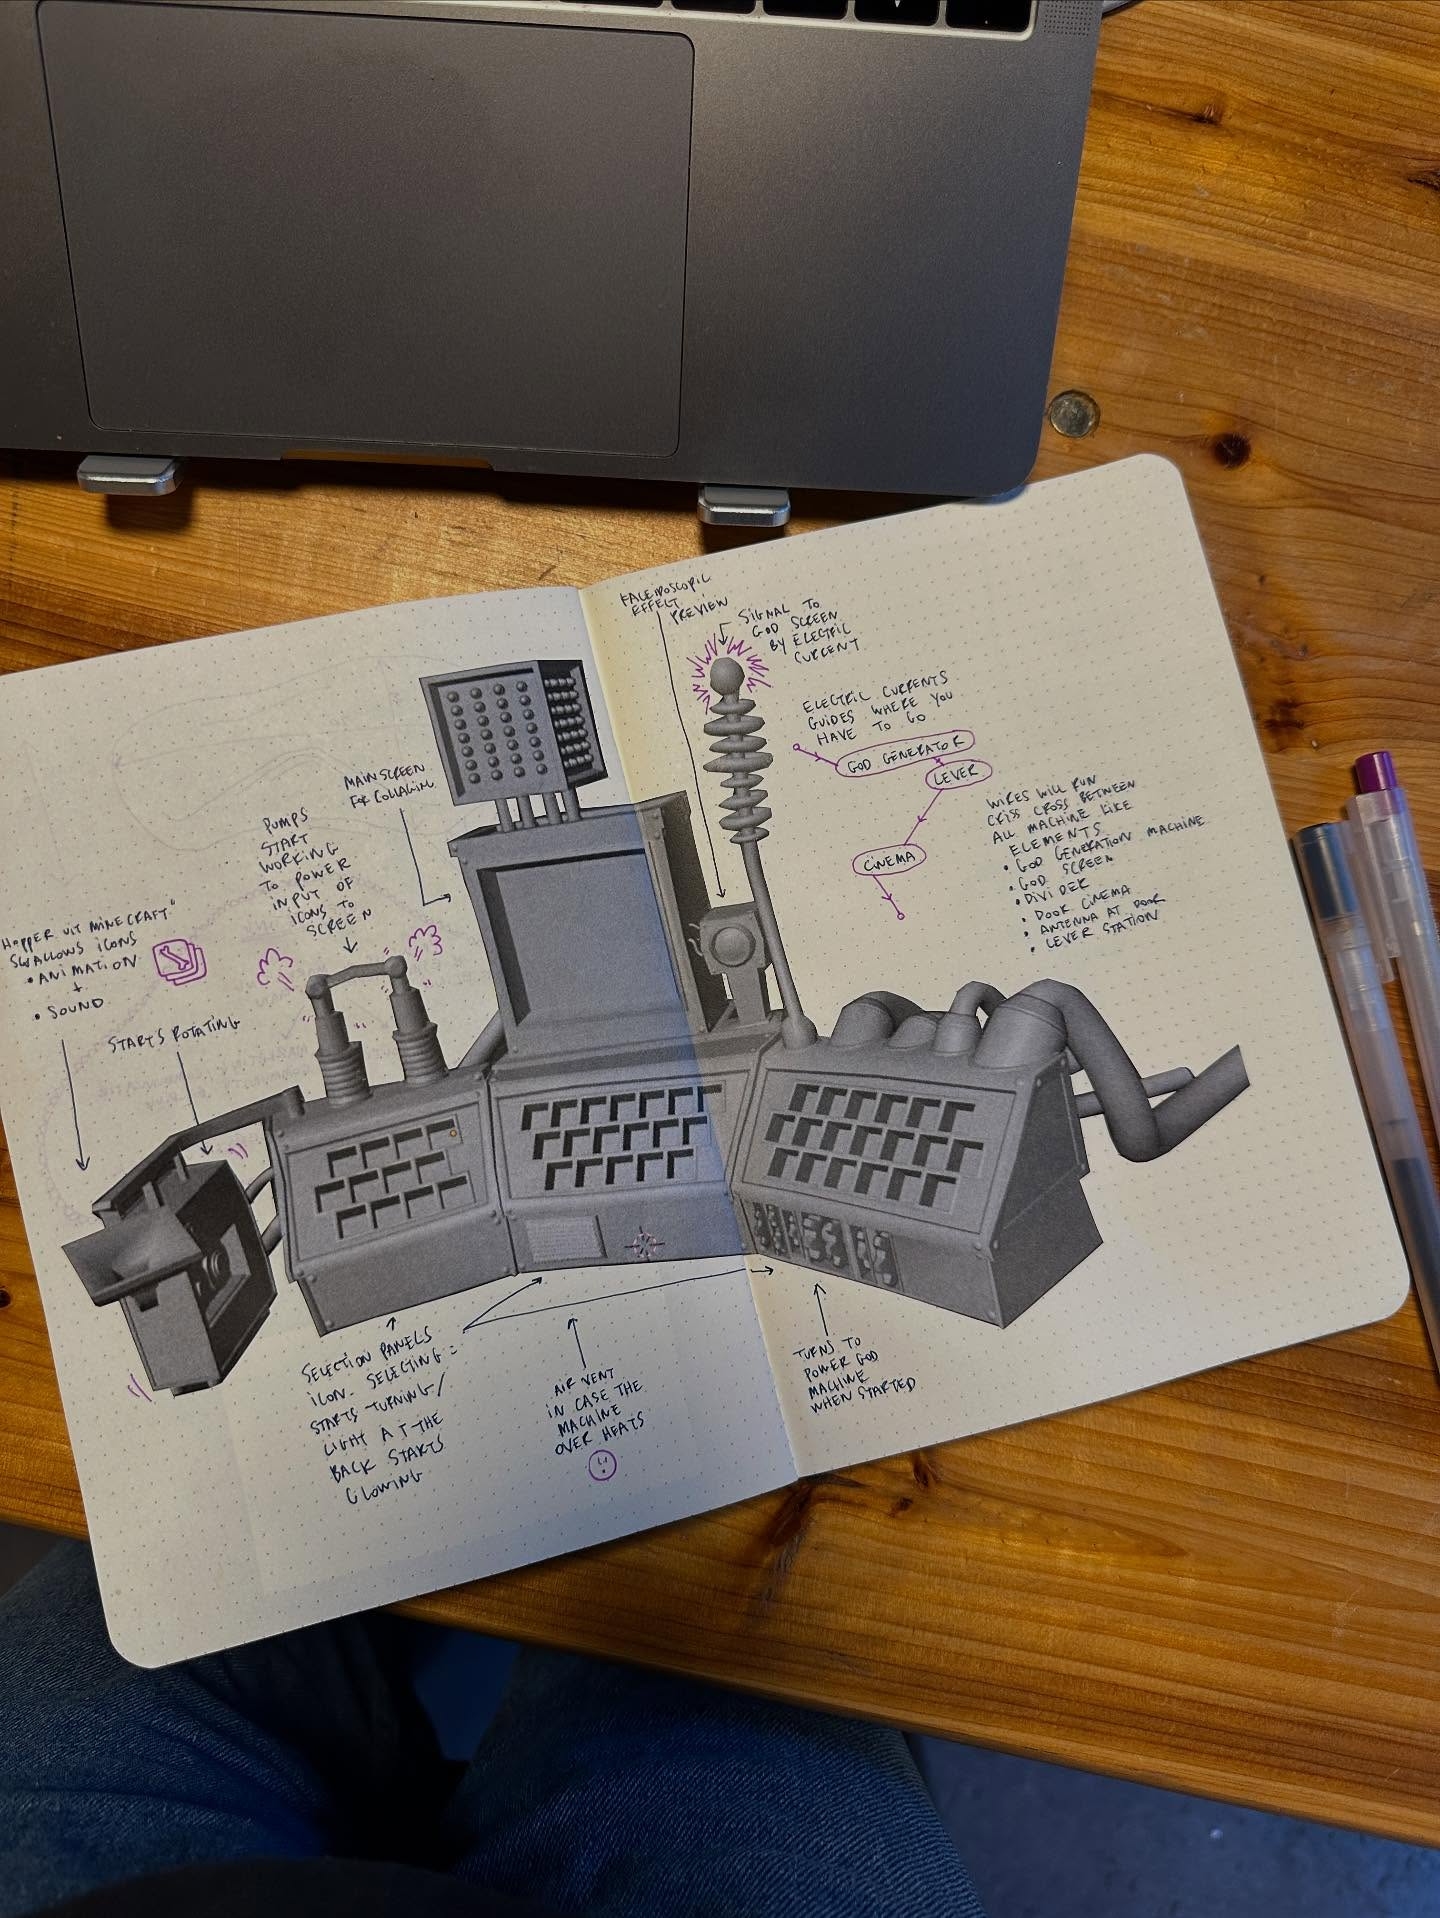 KALEIDOSCOPIC
EFFECT
PREVIEW
SIGNAL TO
GOD SCREEN
BY ELECTRIC
CURRENT
ELECTRIC CURRENTS
GUIDES WHERE YOU
HAVE TO GO
GOD GENERATOR
LEVER
CINEMA
WIRES WILL RUN
CRISS CROSS BETWEEN
ALL MACHINE LIKE
ELEMENTS
• GOD GENERATION MACHINE
• GOD SCREEN
• DIVIDER
• DOOR CINEMA
• ANTENNA AT DOOR
• LEVER STATION
MAIN SCREEN
FOR COLLAGING
PUMPS
START
WORKING
TO POWER
INPUT OF
ICONS TO
SCREEN
HOPPER UIT MINECRAFT"
SWALLOWS ICONS
• ANIMATION
+
• SOUND
STARTS ROTATING
SELECTION PANELS
ICON SELECTING =
STARTS TURNING/
LIGHT AT THE
BACK STARTS
GLOWING
AIR VENT
IN CASE THE
MACHINE
OVER HEATS
TURNS TO
POWER GOD
MACHINE
WHEN STARTED